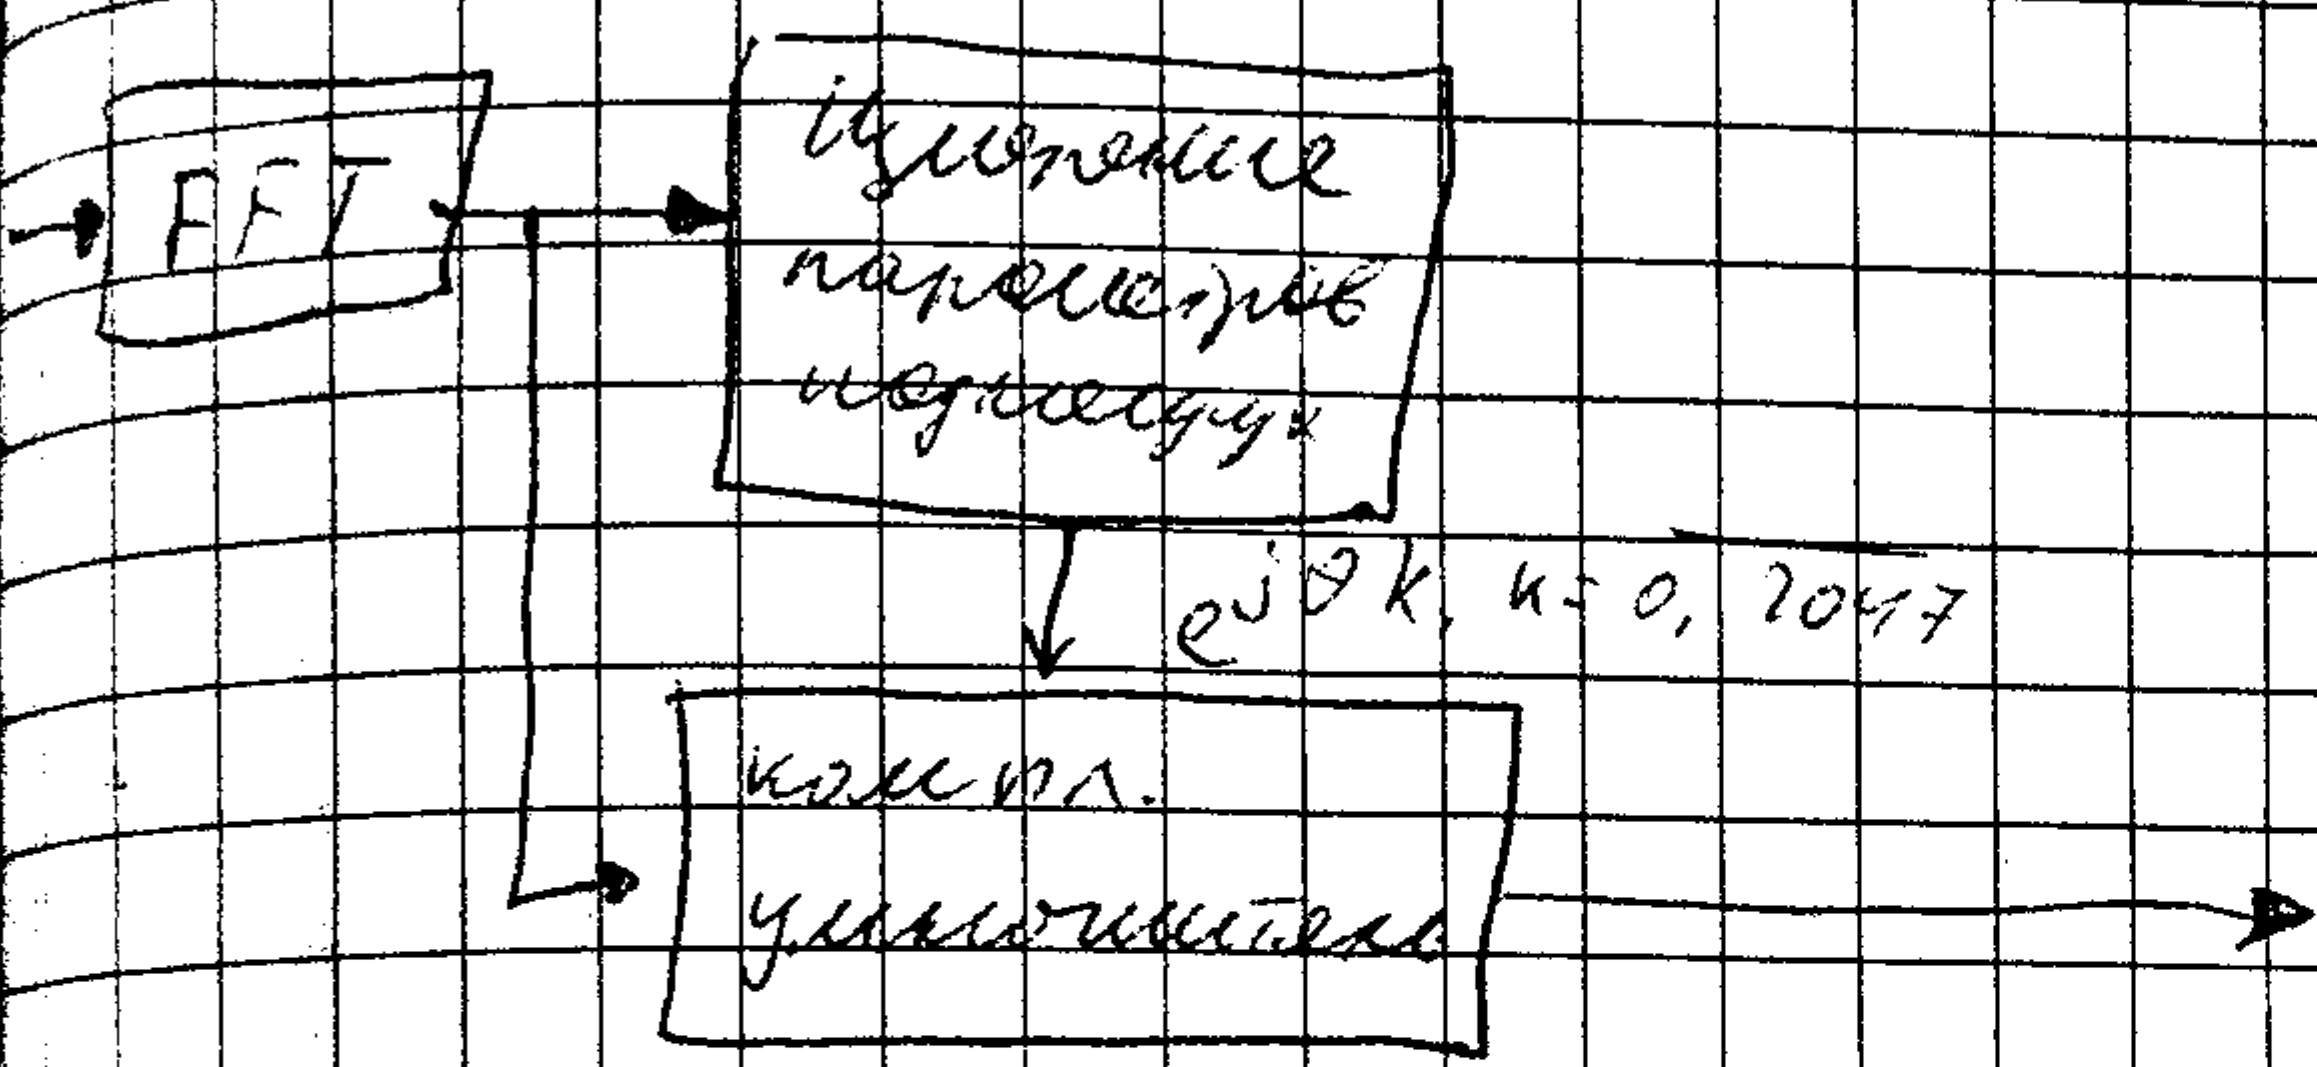 FFT
Измерение
параметров
поднесущих
e^jθk, k = 0, 2047
компл.
умножитель